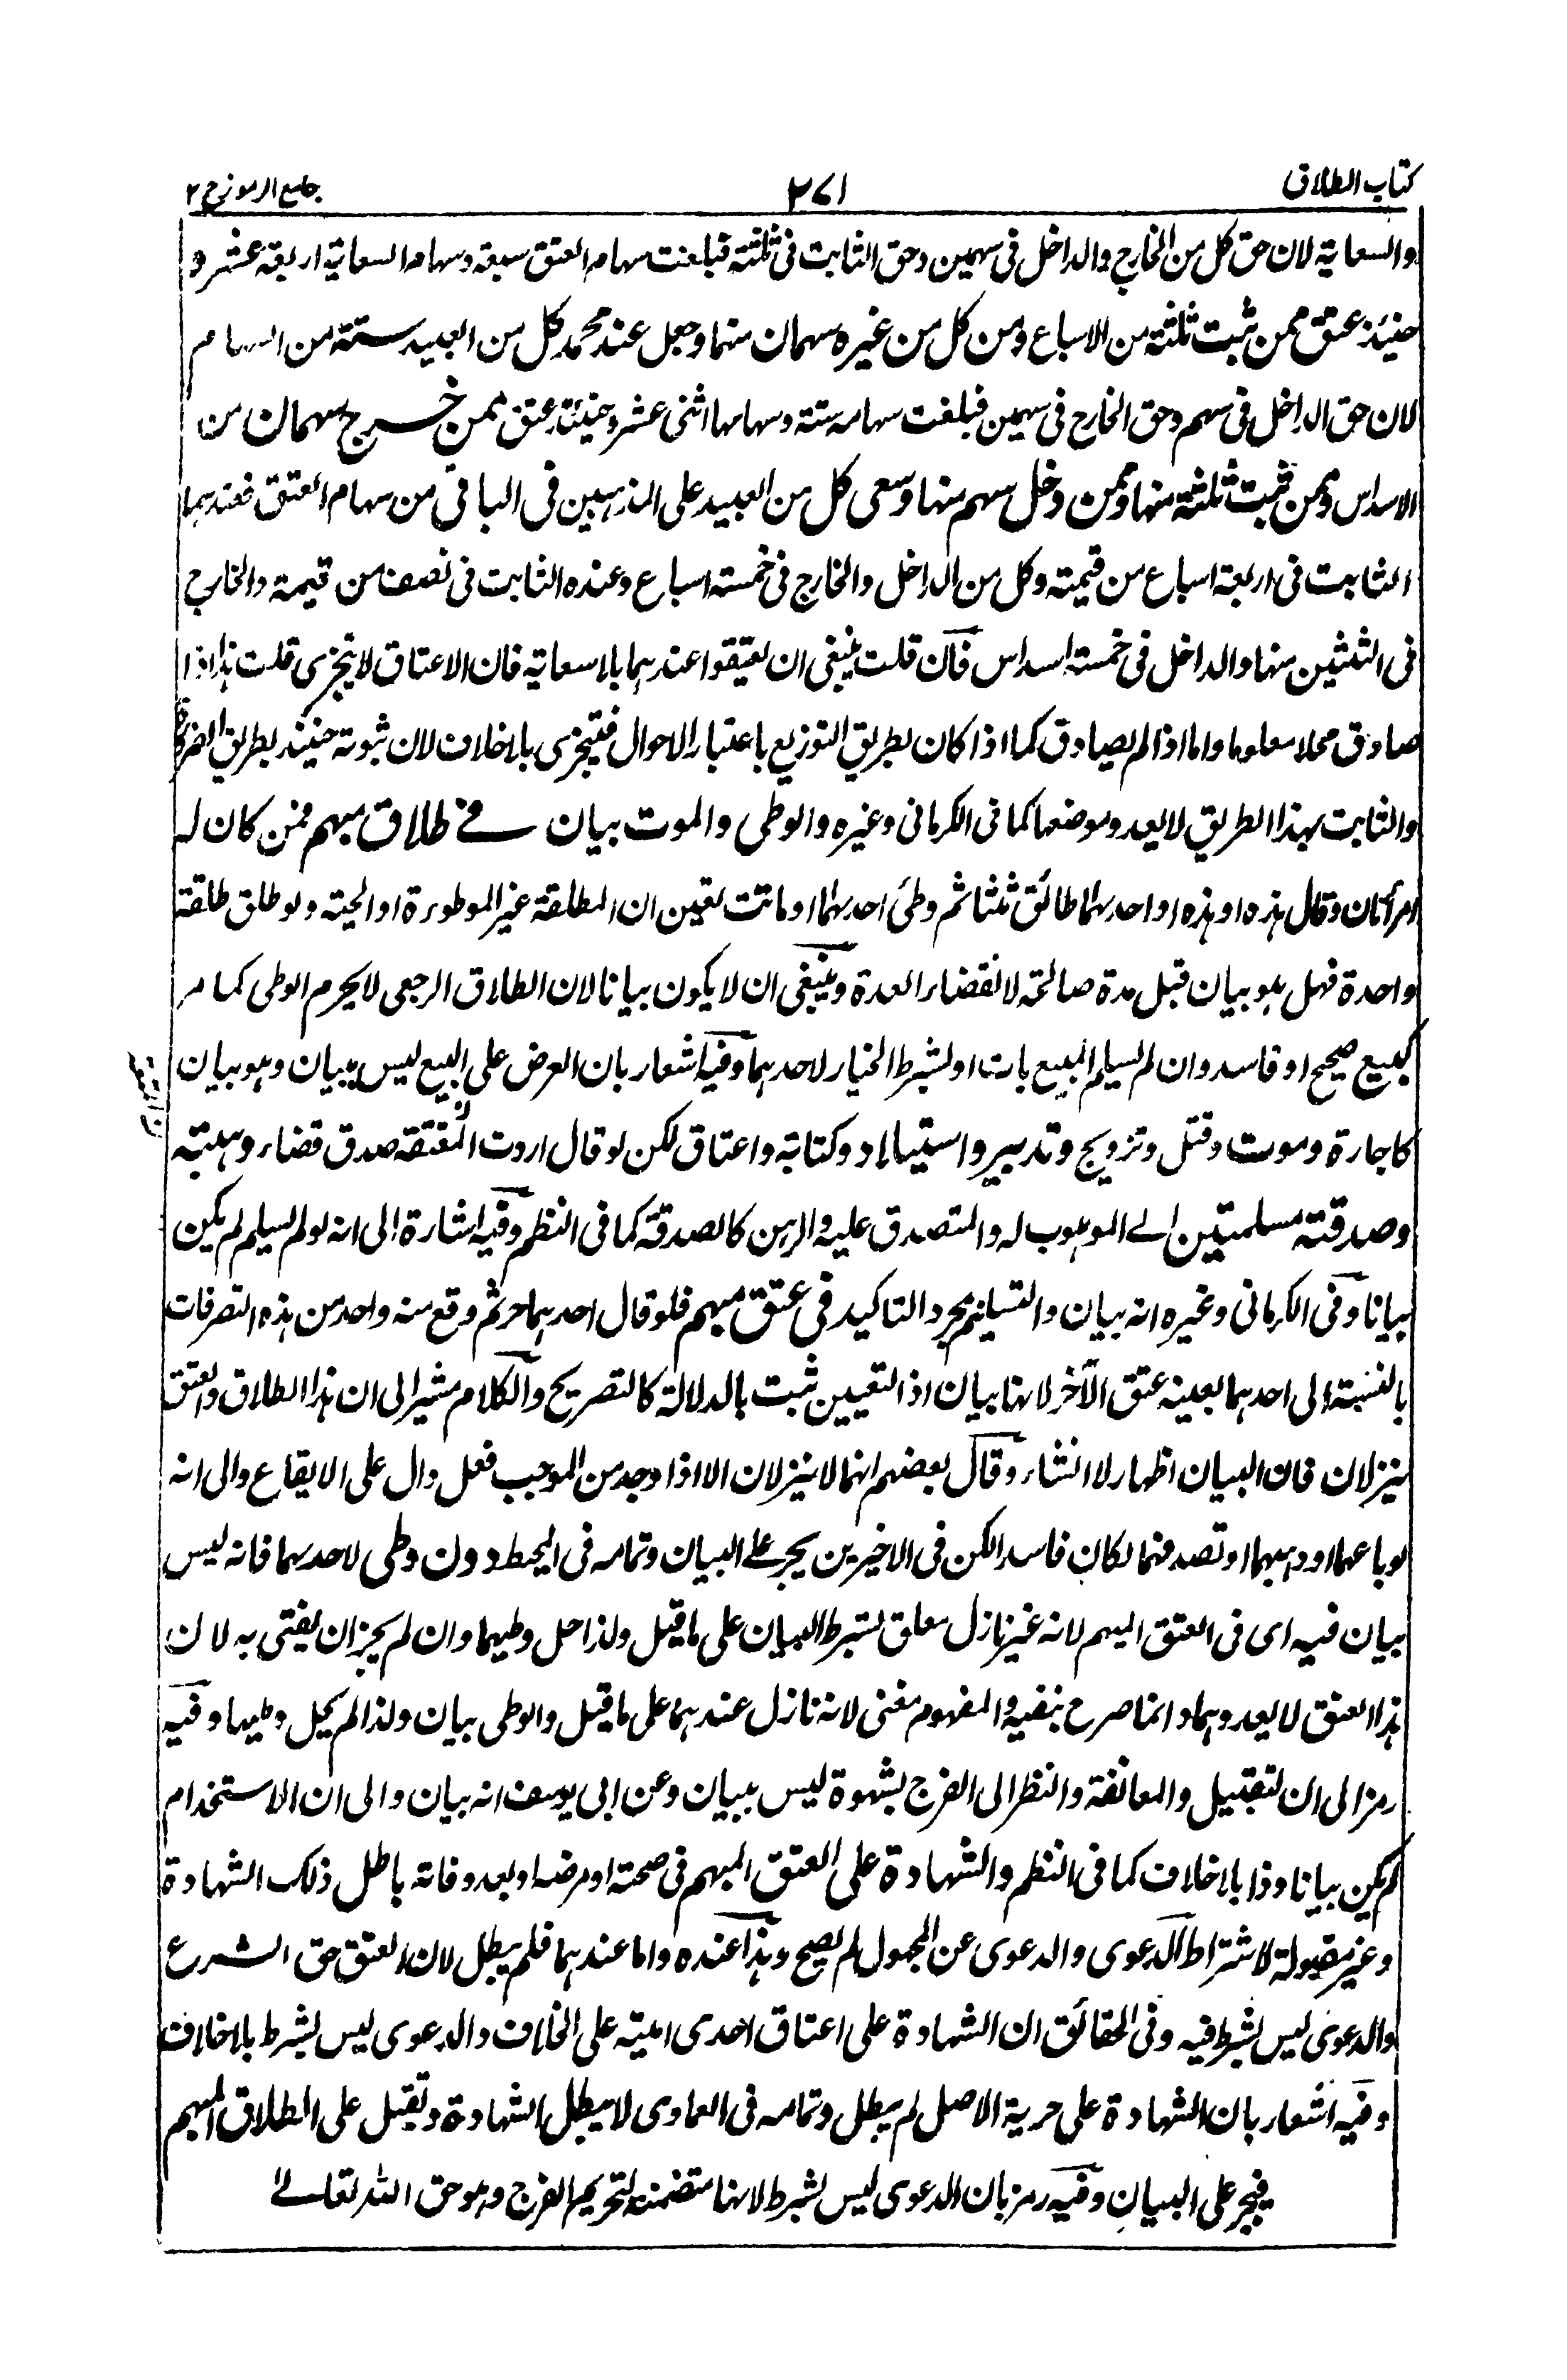 كتاب الطلاق
٣٧١
جامع الرموز ج ٢
والسعاية لان حق كل من الخارج والداخل فى سهمين وحق الثابت فى ثلثة فبلغت سهام العتق سبعة وسهام السعاية اربعة عشر و
حينئذ عتق ممن ثبت ثلثة من الاسباع ومن كل من غيره سهمان منها وجعل عند محمد كل من العبيد ستة من السهام
لان حق الداخل فى سهم وحق الخارج فى سهمين فبلغت سهامه ستة وسهامها اثنى عشر وحينئذ عتق ممن خرج سهمان من
الاسداس وممن ثبت ثلثة منها وممن دخل سهم منها وسعى كل من العبيد على المذهبين فى الباقى من سهام العتق فعندهما
الثابت فى اربعة اسباع من قيمته وكل من الداخل والخارج فى خمسة اسباع وعنده الثابت فى نصف من قيمته والخارج
فى الثلثين منها والداخل فى خمسة اسداس فان قلت ينبغى ان يعتقوا عندهما بلا سعاية فان الاعتاق لا يتجزى قلت هذا اذا
صادق محلا معلوما واما اذا لم يصادق كما اذا كان بطريق التوزيع باعتبار الاحوال فيتجزى بلا خلاف لان ثبوته حينئذ بطريق الضرورة
والثابت بهذا الطريق لا يعدو موضعها كما فى الكرمانى وغيره والوطى والموت بيان فى طلاق مبهم فمن كان له
امرأتان وقال هذه او هذه او احدهما طالق ثلثا ثم وطئ احدهما او ماتت تعين ان المطلقة غير الموطوءة او الحية ولو طلق طلقة
واحدة فهل هو بيان قبل مدة صالحة لانقضاء العدة وينبغى ان لا يكون بيانا لان الطلاق الرجعى لا يحرم الوطى كما مر
كبيع صحيح او فاسد وان لم يسلم المبيع بات او بشرط الخيار لاحدهما وفيه اشعار بان العرض على البيع ليس ببيان وهو بيان
كاجارة وموت وقتل وتزويج وتدبير واستيلاد وكتابة واعتاق لكن لو قال اردت المعتقة صدق قضاء وهبته
وصدقته مسلمتين الى الموهوب له والمتصدق عليه والرهن كالصدقة كما فى النظم وفيه اشارة الى انه لو لم يسلم لم يكن
بيانا وفى الكرمانى وغيره انه بيان والتسليم مجرد التاكيد فى عتق مبهم فلو قال احدهما حر ثم وقع منه واحد من هذه التصرفات
بالنسبة الى احدهما بعينه عتق الآخر لانها بيان اذ التعيين ثبت بالدلالة كالتصريح والكلام مشير الى ان هذا الطلاق والعتق
ينزلان فان البيان اظهار لا انشاء وقال بعضهم انهما لا ينزلان الا اذا وجد من الموجب فعل دال على الايقاع والى انه
لو باعهما او وهبهما او تصدقهما لكان فاسدا لكن فى الاخيرين يجبر على البيان وتمامه فى المحيط دون وطى لاحدهما فانه ليس
بيان فيه اى فى العتق المبهم لانه غير نازل معلق بشرط البيان على ما قيل ولذا حل وطيهما وان لم يجز ان يفتى به لان
هذا العتق لا يعدوهما وانما صرح بنفيه والمفهوم مغنى لانه نازل عندهما على ما قيل والوطى بيان ولذا لم يحل وطيها وفيه
رمز الى ان التقبيل والمعانقة والنظر الى الفرج بشهوة ليس ببيان وعن ابى يوسف انه بيان والى ان الاستخدام
لم يكن بيانا وذا بلا خلاف كما فى النظم والشهادة على العتق المبهم فى صحته او مرضه او بعد وفاته باطل ذلك الشهادة
وغير مقبولة لاشتراط الدعوى والدعوى عن المجهول لم يصح وهذا عنده واما عندهما فلم يبطل لان العتق حق الشرع
والدعوى ليس بشرط فيه وفى الحقائق ان الشهادة على اعتاق احدى امتيه على الخلاف والدعوى ليس بشرط بلا خلاف
وفيه اشعار بان الشهادة على حرية الاصل لم يبطل وتمامه فى العمادى لا يبطل الشهادة وتقبل على الطلاق المبهم
فيجبر على البيان وفيه رمز بان الدعوى ليس بشرط لانها متضمنة لتحريم الفرج وهو حق الله تعالى